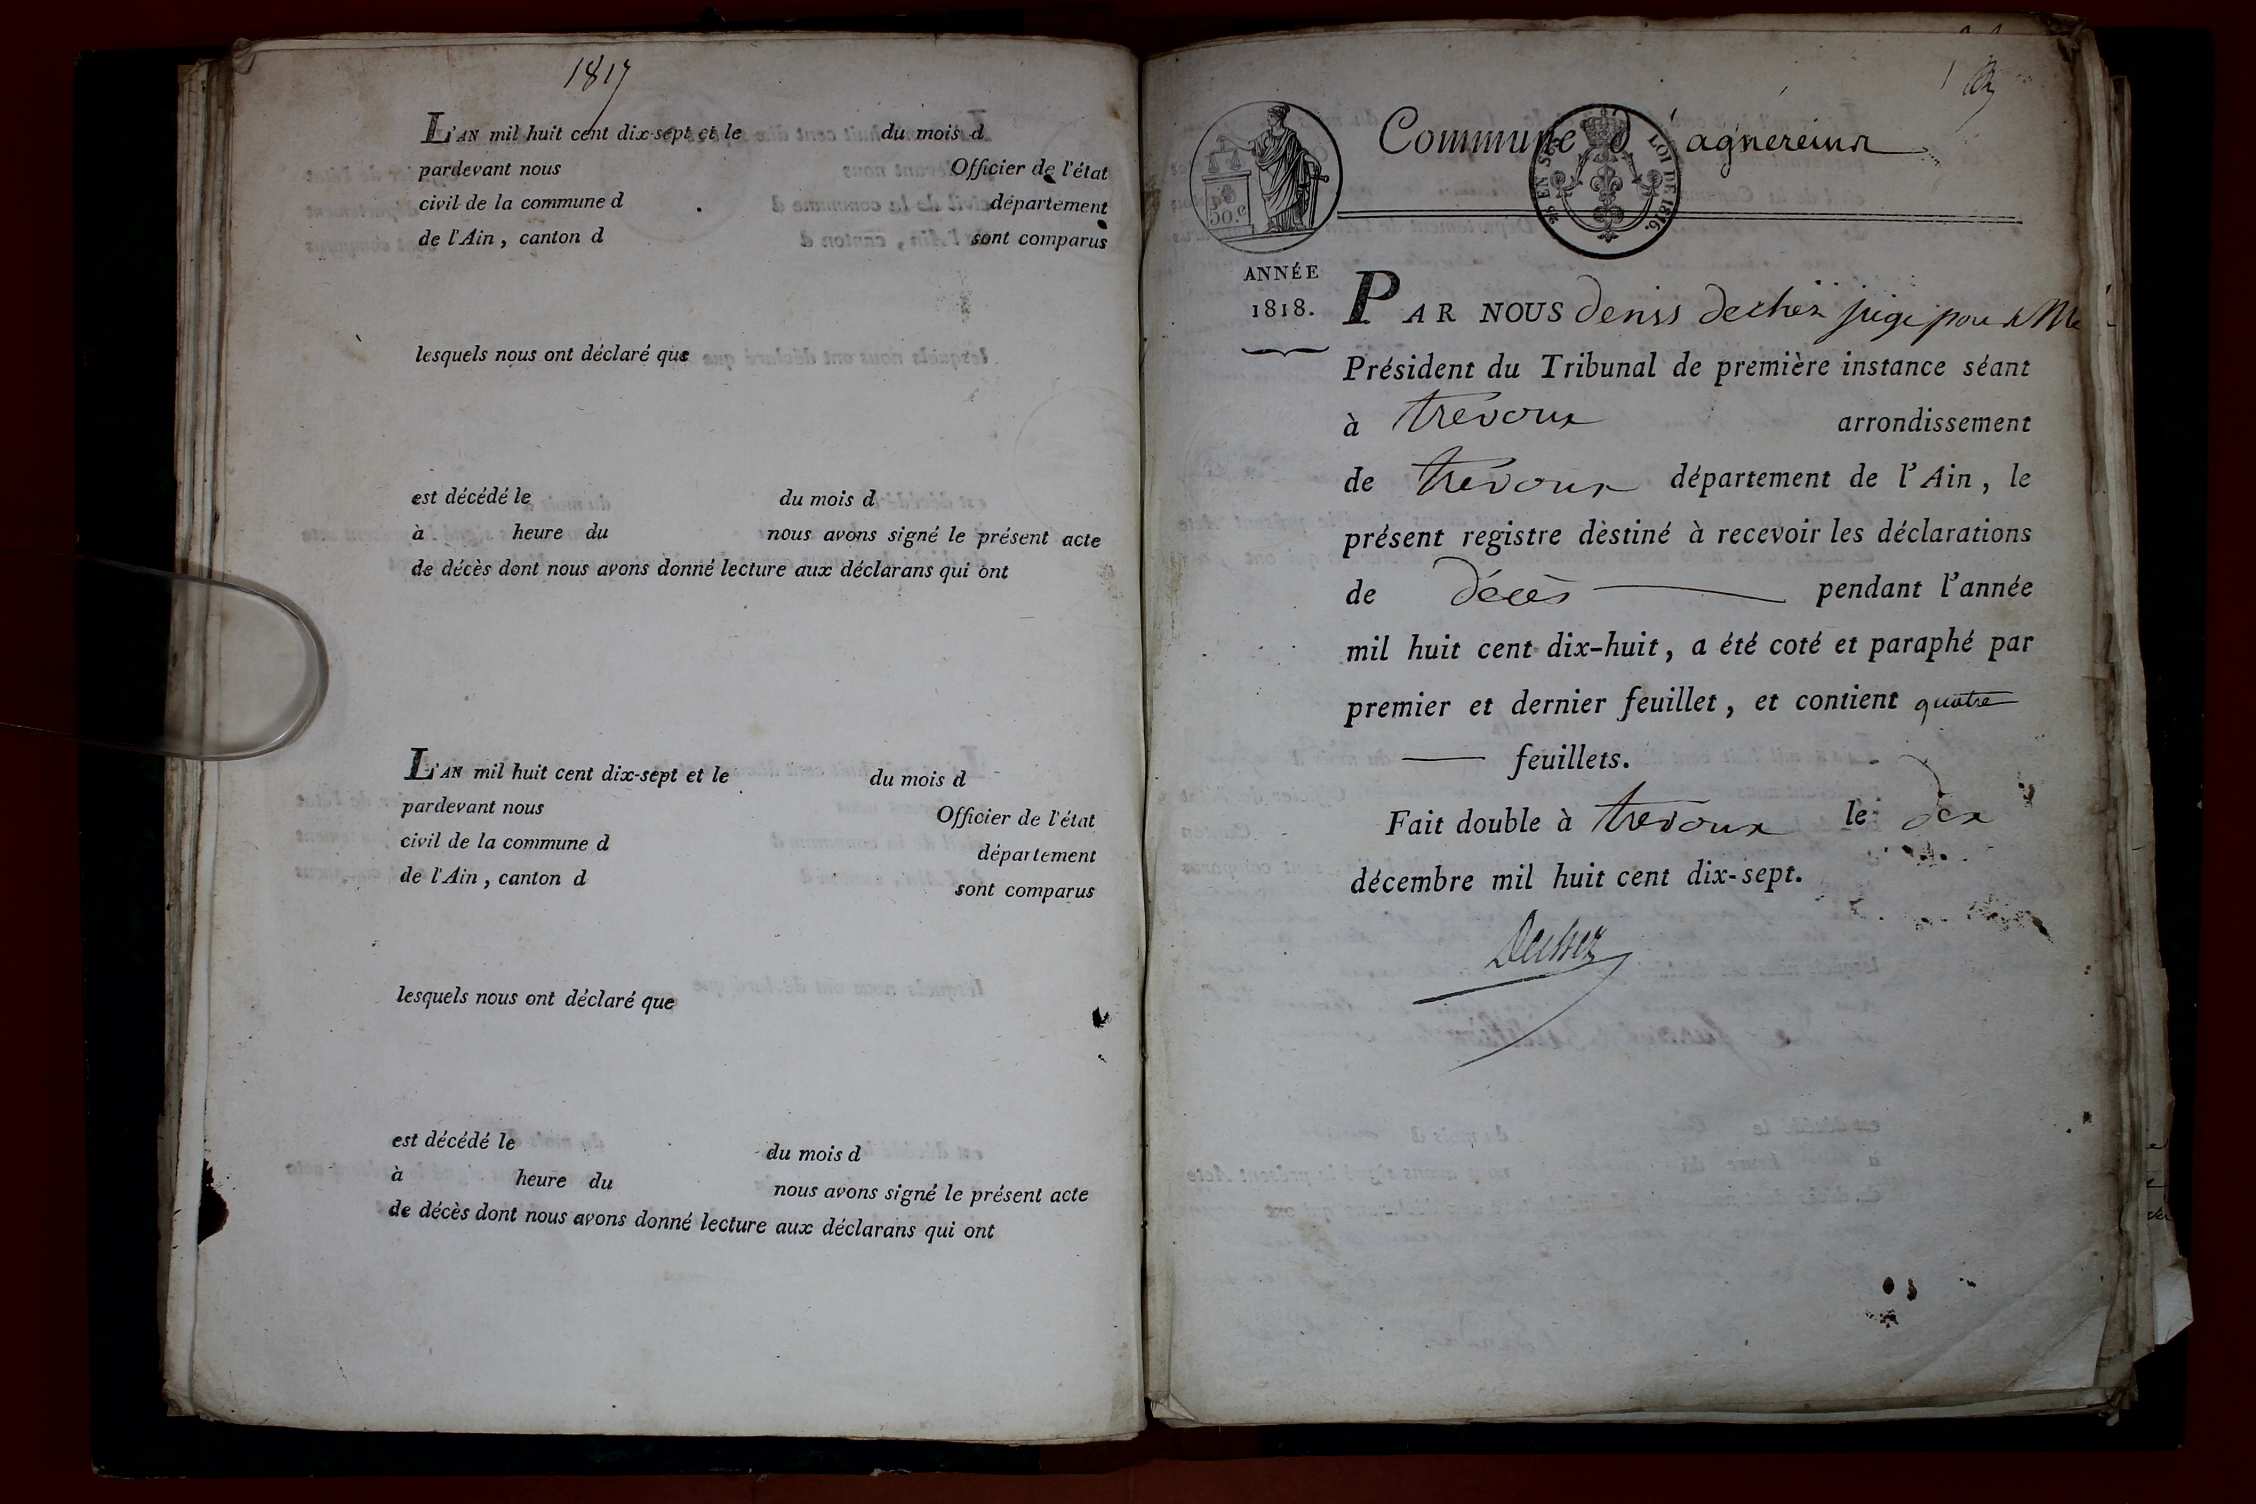 1817
L'AN mil huit cent dix-sept et le du mois d
pardevant nous Officier de l'état
civil de la commune d département
de l'Ain, canton d sont comparus
lesquels nous ont déclaré que
est décédé le du mois d
à heure du nous avons signé le présent acte
de décès dont nous avons donné lecture aux déclarans qui ont
L'AN mil huit cent dix-sept et le du mois d
pardevant nous Officier de l'état
civil de la commune d département
de l'Ain, canton d sont comparus
lesquels nous ont déclaré que
est décédé le du mois d
à heure du nous avons signé le présent acte
de décès dont nous avons donné lecture aux déclarans qui ont
1
Commune d'agnereinx
50.c
EN SUS LOI DE 1816.
ANNÉE
1818.
PAR NOUS denis dechez juge pour Mr le
Président du Tribunal de première instance séant
à trévoux arrondissement
de trévoux département de l'Ain, le
présent registre dèstiné à recevoir les déclarations
de décès pendant l'année
mil huit cent dix-huit, a été coté et paraphé par
premier et dernier feuillet, et contient quatre
feuillets.
Fait double à trévoux le dix
décembre mil huit cent dix-sept.
Dechez